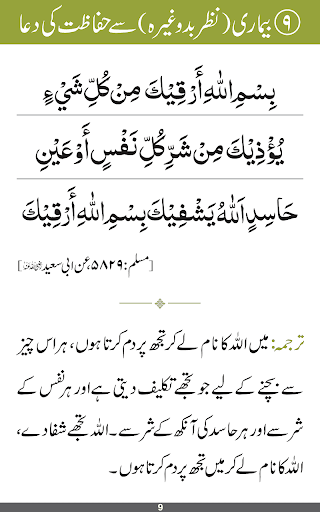 ۹ بیماری (نظر بد وغیرہ) سے حفاظت کی دعا
بِسْمِ اللهِ أَرْقِيْكَ مِنْ كُلِّ شَيْءٍ
يُؤْذِيْكَ مِنْ شَرِّ كُلِّ نَفْسٍ أَوْ عَيْنِ
حَاسِدٍ اَللهُ يَشْفِيْكَ بِسْمِ اللهِ أَرْقِيْكَ
[مسلم: ۵۸۲۹، عن ابی سعید]
ترجمہ: میں اللہ کا نام لے کر تجھ پر دم کرتا ہوں، ہر اس چیز
سے بچنے کے لیے جو تجھے تکلیف دیتی ہے اور ہر نفس کے
شر سے اور ہر حاسد کی آنکھ کے شر سے۔ اللہ تجھے شفا دے،
اللہ کا نام لے کر میں تجھ پر دم کرتا ہوں۔
9